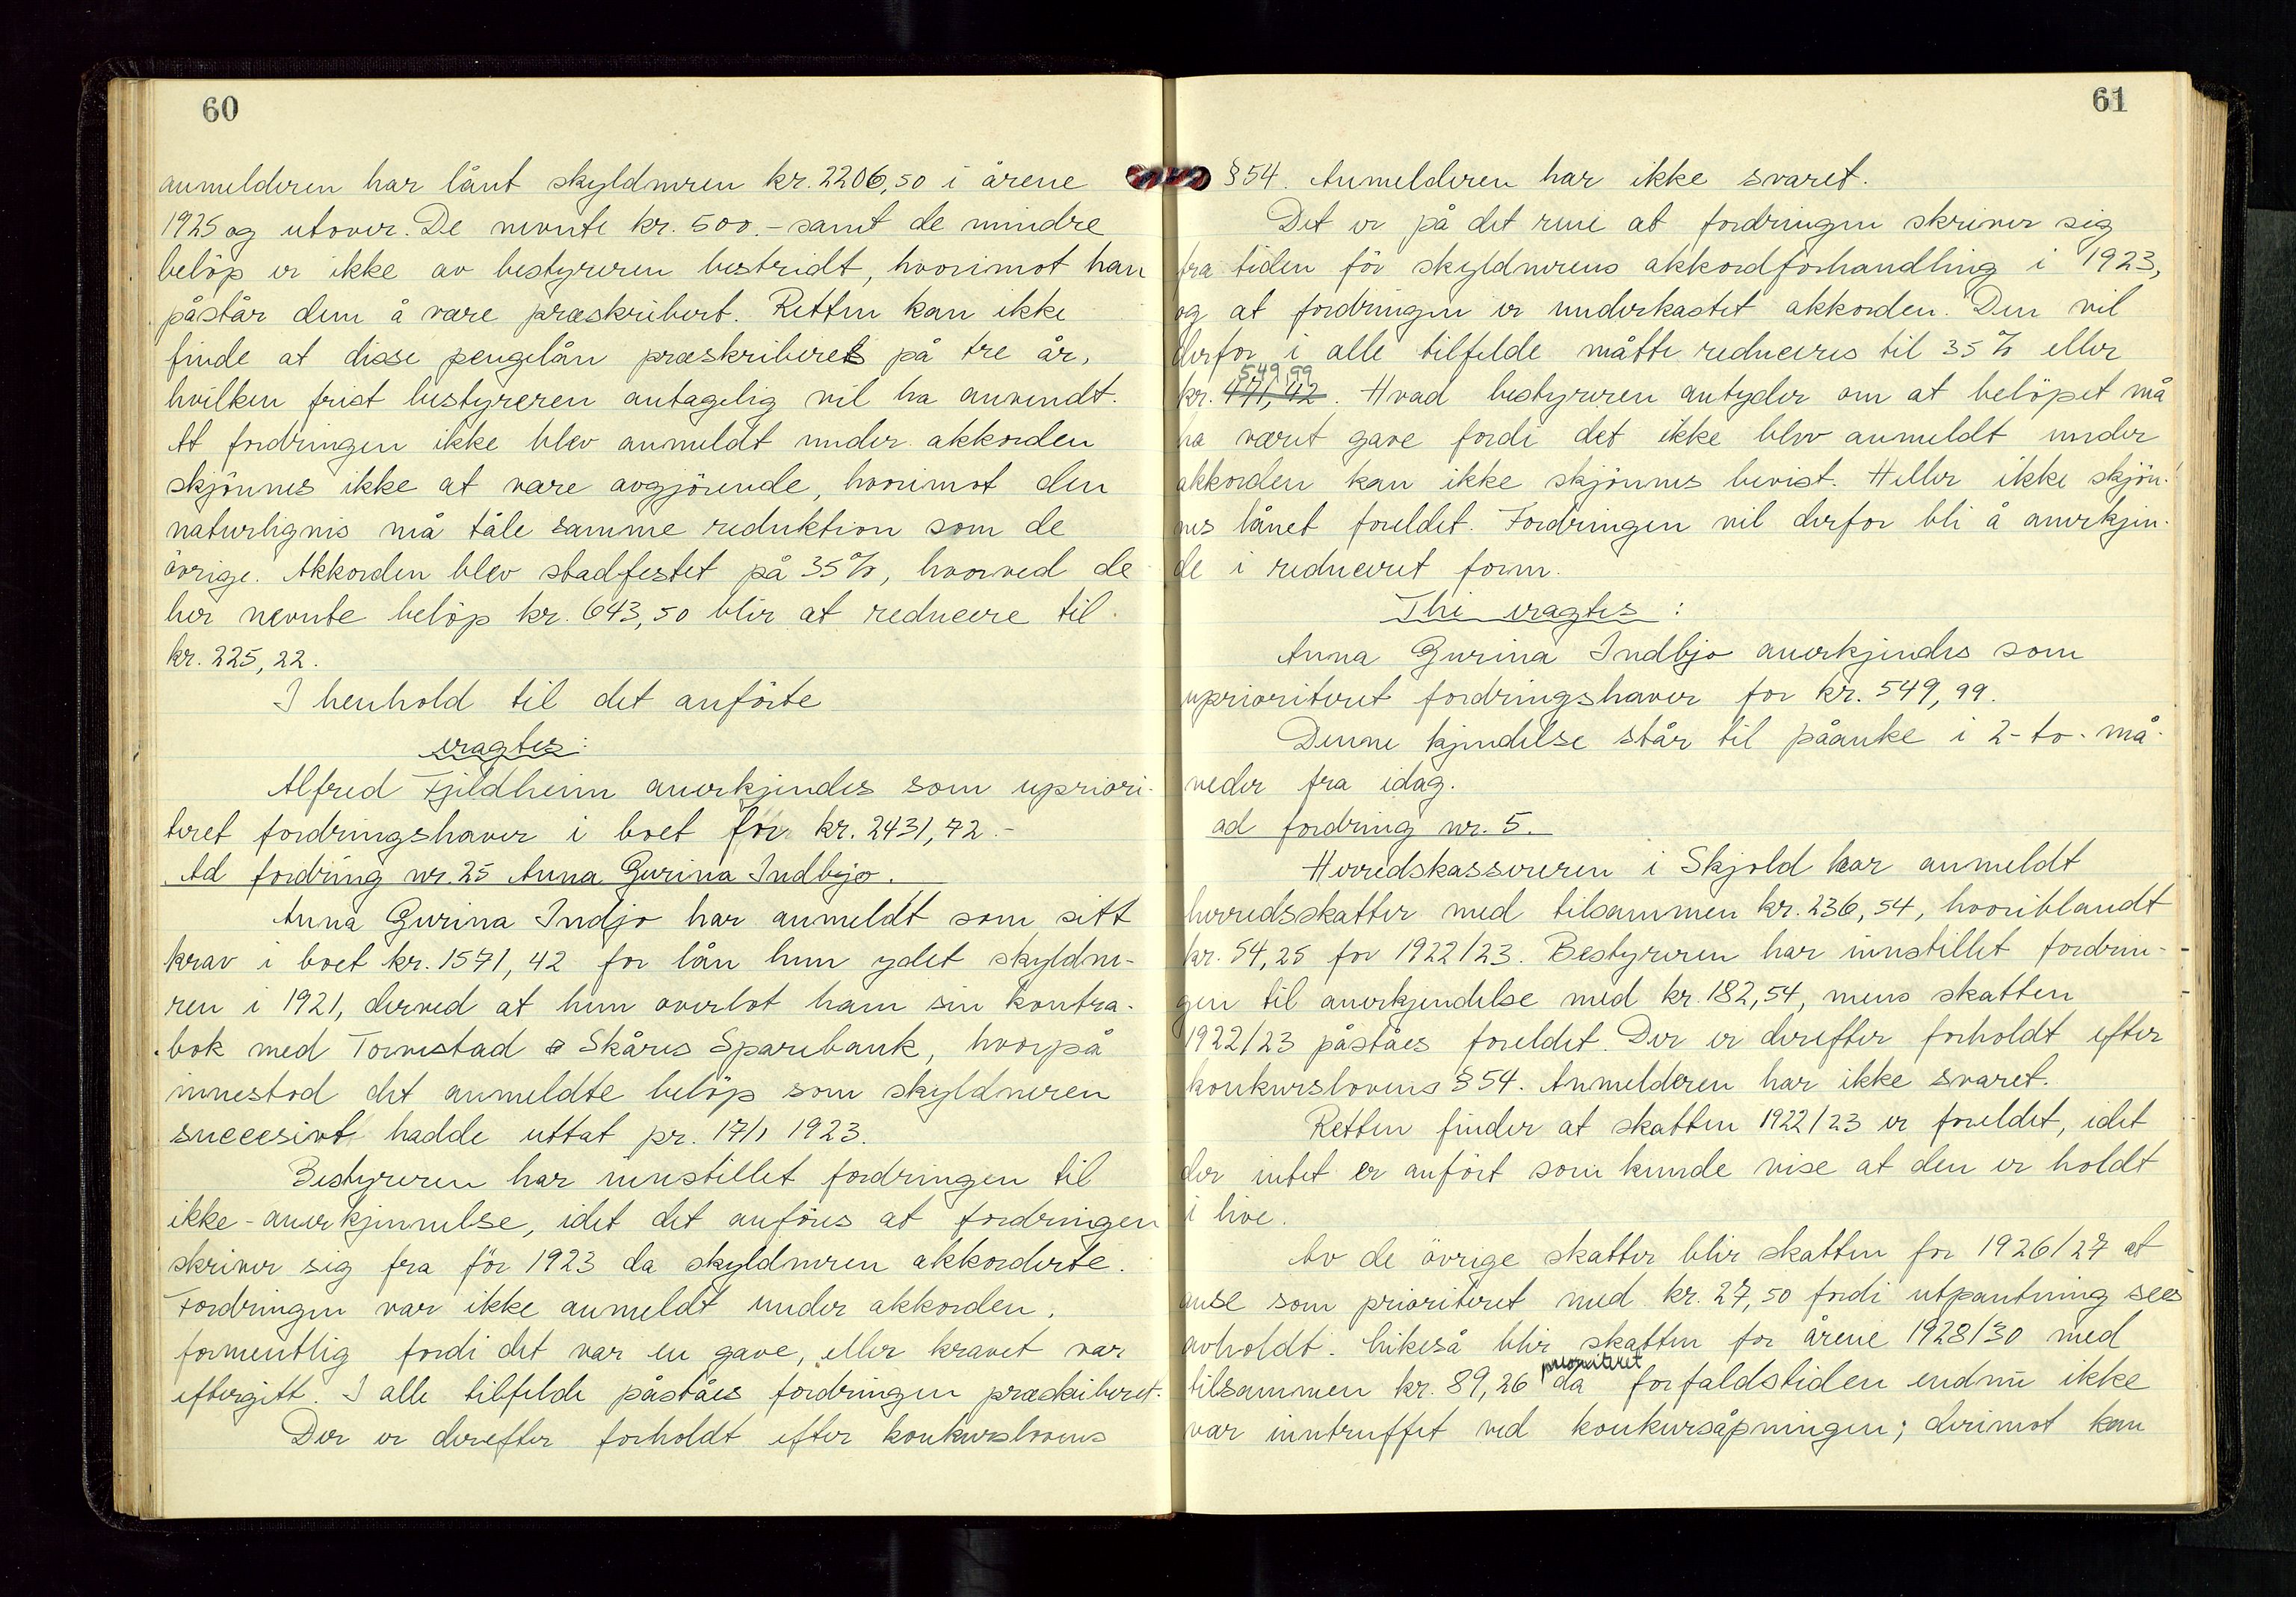 60
anmelderen har lånt skyldneren kr. 2206,50 i årene
1925 og utover. De nevnte kr. 500.- samt de mindre
beløp er ikke av bestyreren bestridt, hvorimot han
påstår dem å være præskribert. Retten kan ikke
finde at disse pengelån præskriberes på tre år,
hvilken frist bestyreren antagelig vil ha anvendt.
At fordringen ikke blev anmeldt under akkorden
skjönnes ikke at være avgjörende, hvorimot den
naturligvis må tåle samme reduktion som de
övrige. Akkorden blev stadfestet på 35%, hvorved de
her nevnte belöp kr. 643,50 blir at reducere til
kr. 225,22.
I henhold til det anförte
eragtes:
Alfred Fjeldheim anerkjendes som upriori-
teret fordringshaver i boet for kr. 2431,72.-
Ad fordring nr. 25 Anna Gurina Indbjo.
Anna Gurina Indjo har anmeldt som sitt
krav i boet kr. 1571,42 for lån hun ydet skyldne-
ren i 1921, derved at hun overlot ham sin kontra-
bok med Torvestad & Skåres Sparebank, hvorpå
innestod det anmeldte belöp som skyldneren
succesivt hadde uttat pr. 17/1 1923.
Bestyreren har innstillet fordringen til
ikke-anerkjennelse, idet det anföres at fordringen
skriver sig fra för 1923 da skyldneren akkorderte.
Fordringen var ikke anmeldt under akkorden,
formentlig fordi det var en gave, eller kravet var
eftergitt. I alle tilfelde påståes fordringen præskriberet.
Der er derefter forholdt efter konkurslovens
61
§54. Anmelderen har ikke svaret.
Det er på det rene at fordringen skriver sig
fra tiden för skyldnerens akkordforhandling i 1923,
og at fordringen er underkastet akkorden. Den vil
derfor i alle tilfelde måtte reduceres til 35% eller
549,99
kr. 471,42. Hvad bestyreren antyder om at belöpet må
ha været gave fordi det ikke blev anmeldt under
akkorden kan ikke skjönnes bevist. Heller ikke skjön-
nes lånet foreldet. Fordringen vil derfor bli å anerkjen-
de i reduceret form.
Thi eragtes:
Anna Gurina Indbjo anerkjendes som
uprioriteret fordringshaver for kr. 549,99.
Denne kjendelse står til påanke i 2-to-må-
neder fra idag.
ad fordring nr. 5.
Herredskassereren i Skjold har anmeldt
herredsskatter med tilsammen kr. 236,54, hvoriblandt
kr. 54,25 for 1922/23. Bestyreren har innstillet fordrin-
gen til anerkjendelse med kr. 182,54, mens skatten
1922/23 påståes foreldet. Der er derefter forholdt efter
konkurslovens §54. Anmelderen har ikke svaret.
Retten finder at skatten 1922/23 er foreldet, idet
der intet er anfört som kunde vise at den er holdt
i live.
Av de övrige skatter blir skatten for 1926/27 at
anse som prioriteret med kr. 27,50 fordi utpantning sees
avholdt. Likeså blir skatten for årene 1928/30 med
prioriteret
tilsammen kr. 89,26 da forfaldstiden endnu ikke
var inntruffet ved konkursåpningen; derimot kan